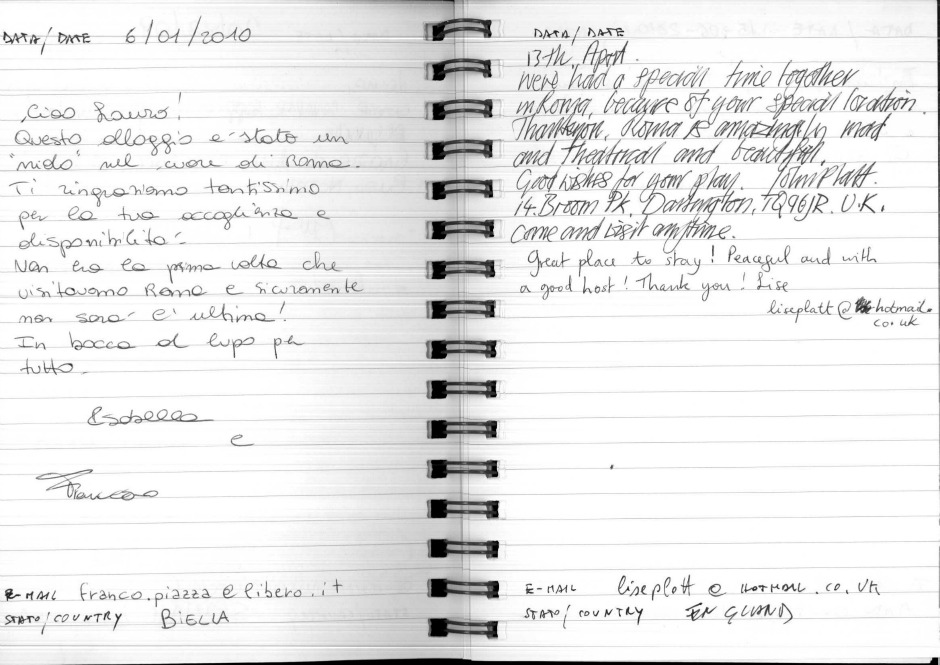 DATA/DATE 6/01/2010
Ciao Lauro!
Questo alloggio e' stato un
"nido" nel cuore di Roma.
Ti ringraziamo tantissimo
per la tua accoglienza e
disponibilita'.
Non era la prima volta che
visitavamo Roma e sicuramente
non sara' l'ultima!
In bocca al lupo per
tutto.
Isabella
e
Franco
E-MAIL franco.piazza@libero.it
STATO/COUNTRY BIELLA
DATA/DATE
13th, April.
We've had a special time together
in Roma, because of your special location.
Thankyou, Roma is amazingly mad
and theatrical and beautiful.
Good wishes for your play. John Platt.
14. Broom Pk, Dartington, TQ96JR. U.K.
Come and visit anytime.
Great place to stay! Peaceful and with
a good host! Thank you! Lise
liseplatt@hotmail.
co.uk
E-MAIL liseplatt @ HOTMAIL.CO.UK
STATO/COUNTRY ENGLAND